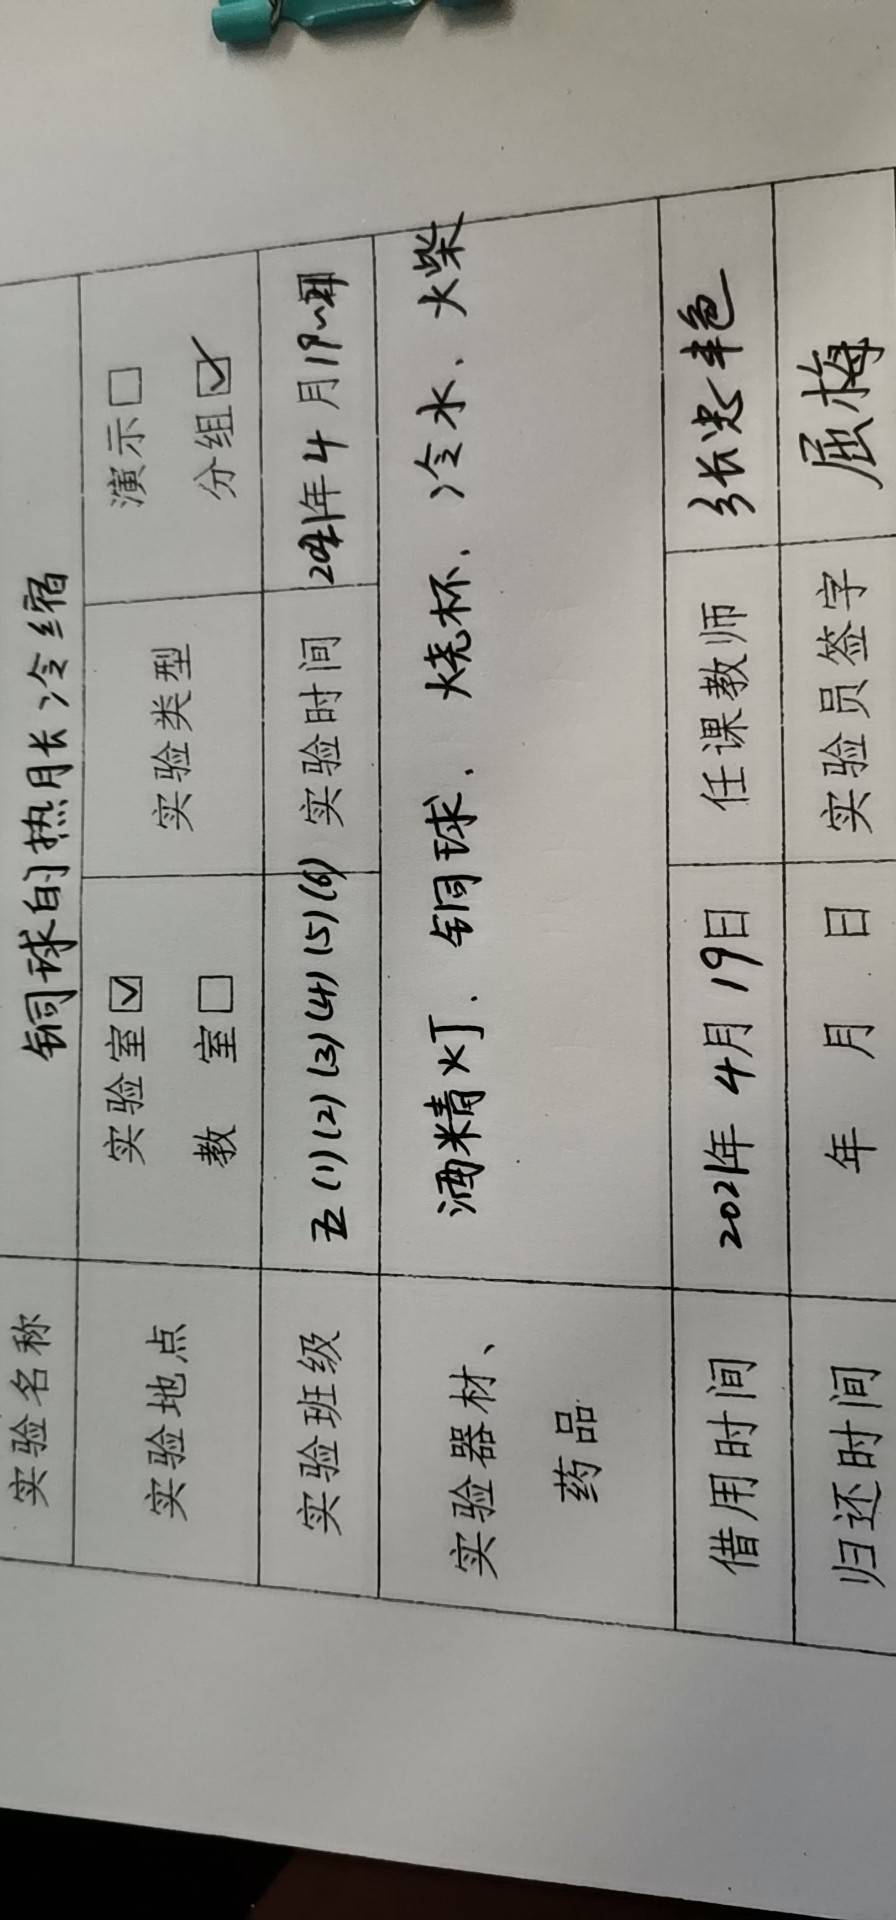 实验名称 铜球的热胀冷缩
实验地点 实验室☑ 教 室□ 实验类型 演示□ 分组☑
实验班级 五(1)(2)(3)(4)(5)(6) 实验时间 2021年4月19
实验器材、药品 酒精灯、铜球、烧杯、冷水、火柴
借用时间 2021年4月19日 任课教师
归还时间 年 月 日 实验员签字 屈梅